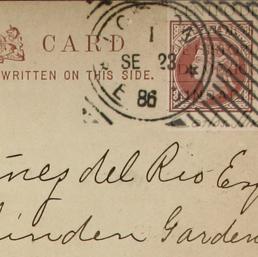 CARD
WRITTEN ON THIS SIDE.
1
SE 23
86
del Rio Esq
Linden Gardens